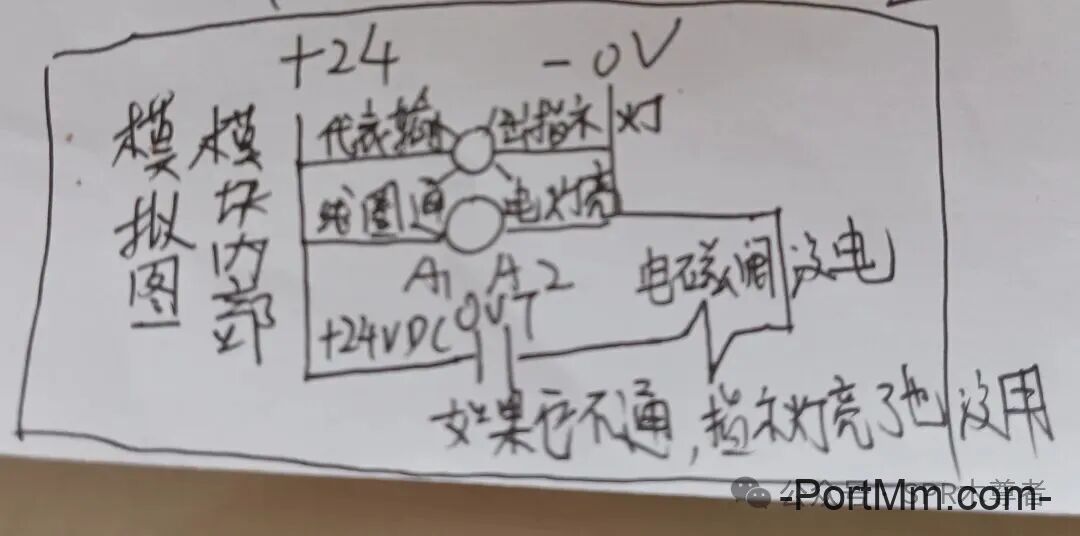 +24 -0V
模拟图
模块内部
代表输出指示灯
线圈通电灯亮
A1 A2
+24VDC OUT
电磁阀没电
如果它不通,指示灯亮了也没用
公众号
-PortMm.com-